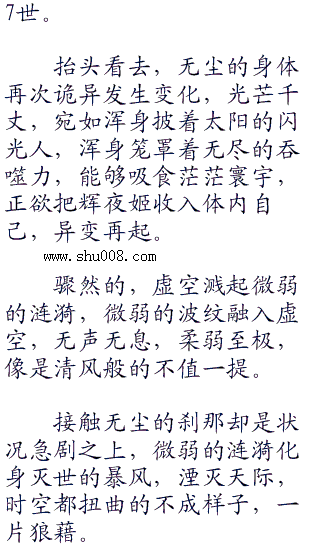 7世。
抬头看去，无尘的身体
再次诡异发生变化，光芒千
丈，宛如浑身披着太阳的闪
光人，浑身笼罩着无尽的吞
噬力，能够吸食茫茫寰宇，
正欲把辉夜姬收入体内自
己，异变再起。
www.shu008.com
骤然的，虚空溅起微弱
的涟漪，微弱的波纹融入虚
空，无声无息，柔弱至极，
像是清风般的不值一提。
接触无尘的刹那却是状
况急剧之上，微弱的涟漪化
身灭世的暴风，湮灭天际，
时空都扭曲的不成样子，一
片狼藉。